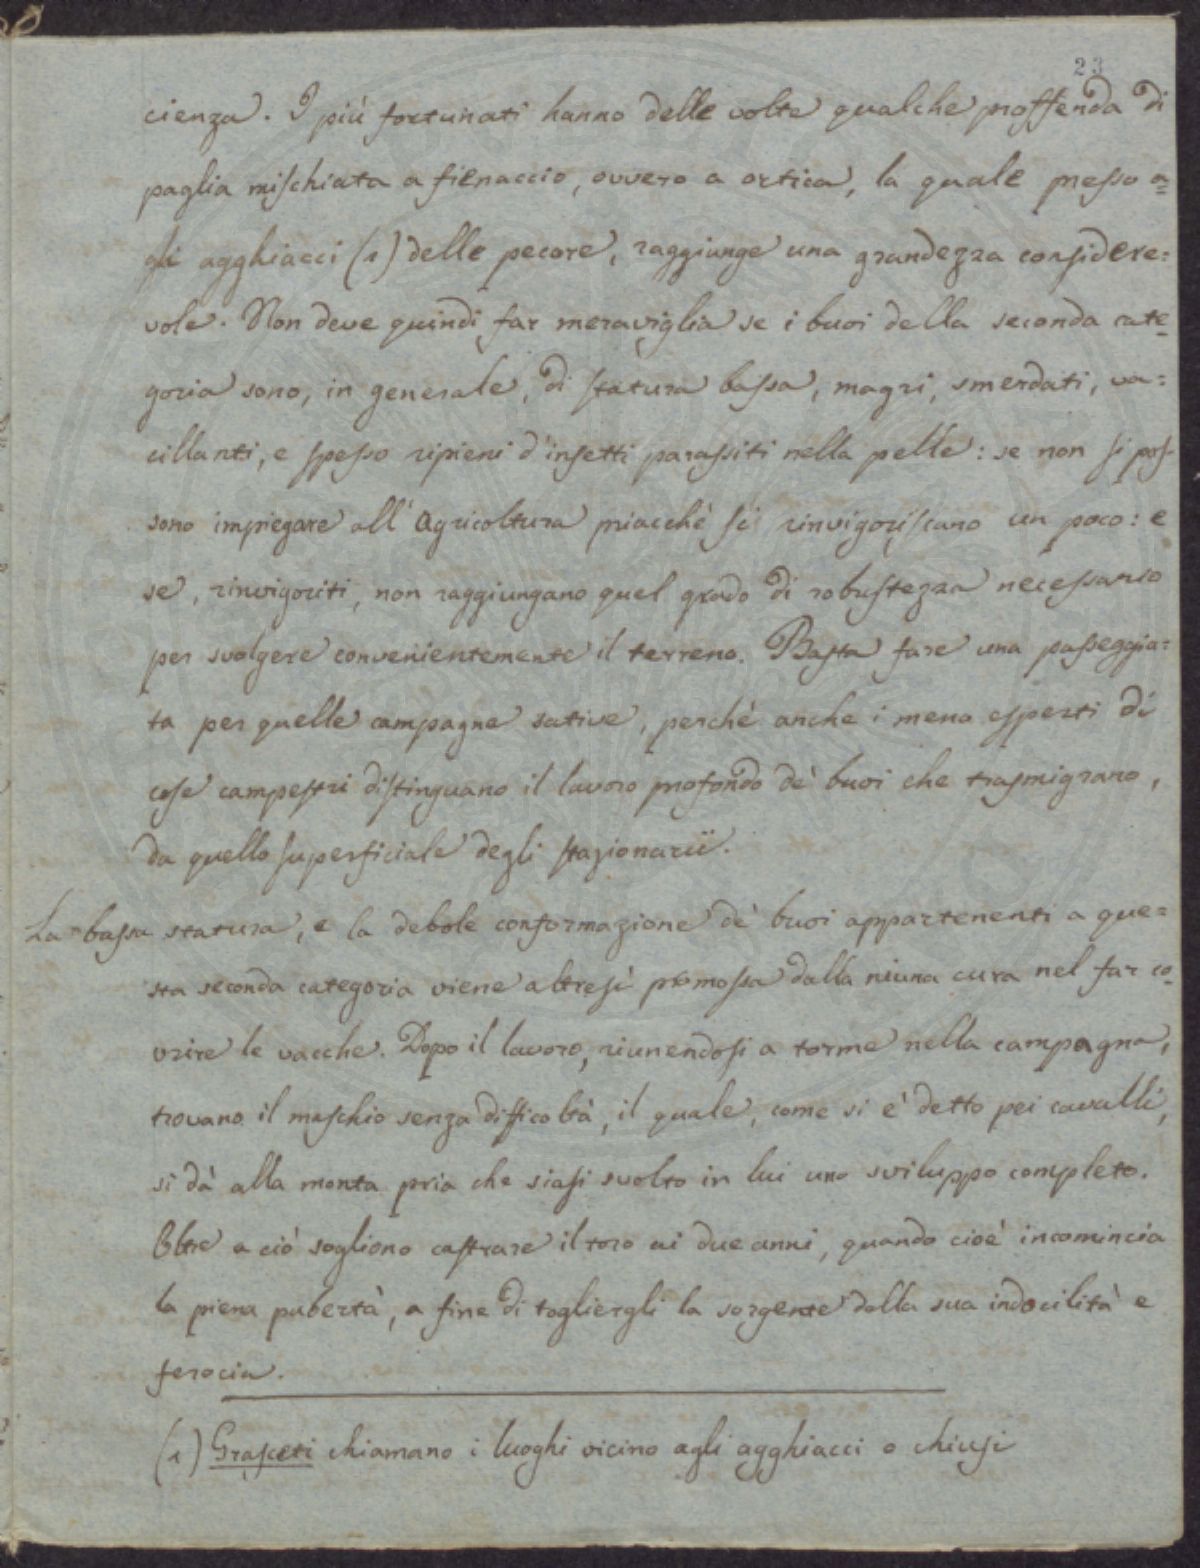 23
cienza. I più fortunati hanno delle volte qualche proffenda di
paglia mischiata a fienaccio, ovvero a ortica, la quale presso a=
gli agghiacci (1) delle pecore, raggiunge una grandezza considere=
vole. Non deve quindi far meraviglia se i buoi della seconda cate=
goria sono, in generale, di statura bassa, magri, smerdati, va=
cillanti, e spesso ripieni d'insetti parassiti nella pelle: se non si pos=
sono impiegare all'Agricoltura priacché si rinvigoriscano un poco: e
se, rinvigoriti, non raggiungano quel grado di robustezza necessario
per svolgere convenientemente il terreno. Basta fare una passeggia=
ta per quelle campagne sative, perché anche i meno esperti di
cose campestri distinguano il lavoro profondo de' buoi che trasmigrano,
da quello superficiale degli stazionarii.
La bassa statura, e la debole conformazione de' buoi appartenenti a que=
sta seconda categoria viene altresì promossa dalla niuna cura nel far co=
vrire le vacche. Dopo il lavoro, riunendosi a torme nella campagna,
trovano il maschio senza difficoltà, il quale, come si è detto pei cavalli,
si dà alla monta pria che siasi svolto in lui uno sviluppo completo.
Oltre a ciò sogliono castrare il toro ai due anni, quando cioè incomincia
la piena pubertà, a fine di togliergli la sorgente della sua indocilità e
ferocia.
(1) Grasceti chiamano i luoghi vicino agli agghiacci o chiusi